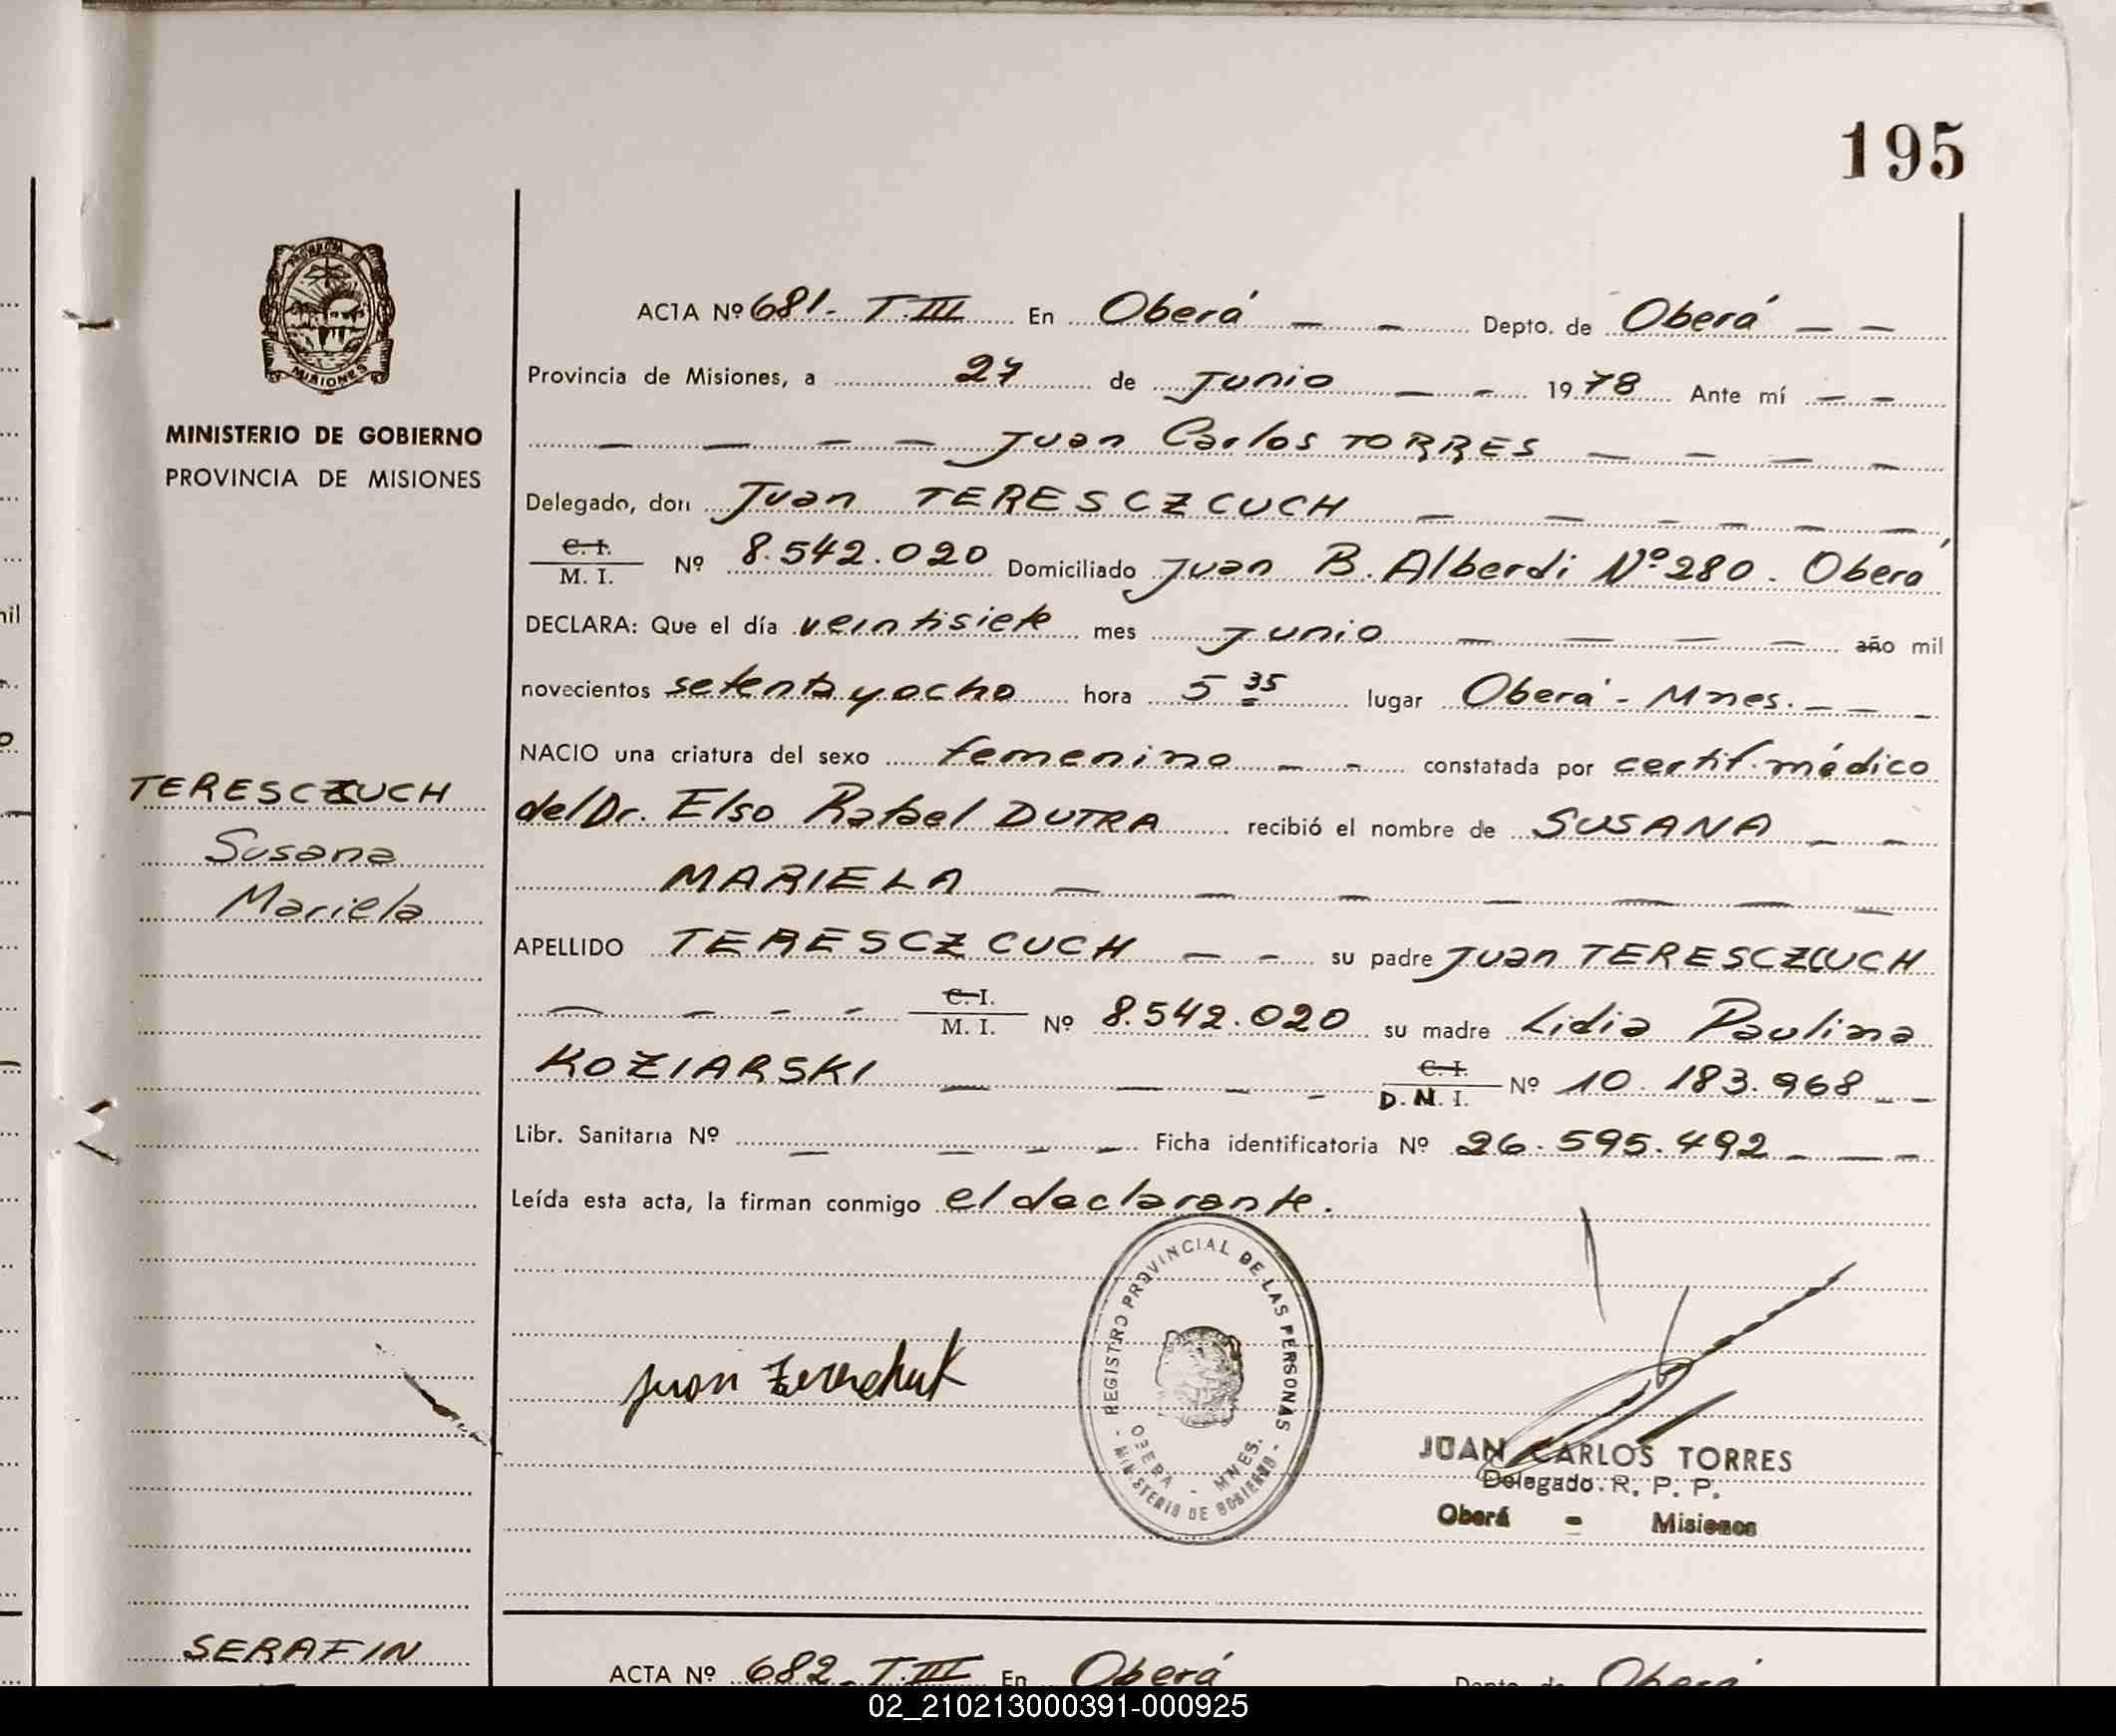 195
PROVINCIA DE
MISIONES
MINISTERIO DE GOBIERNO
PROVINCIA DE MISIONES
ACTA Nº 681. T.III En Oberá Depto. de Oberá
Provincia de Misiones, a 27 de Junio 1978 Ante mí
Juan Carlos TORRES
Delegado, don Juan TERESCZCUCH
C. I.
M. I. Nº 8.542.020 Domiciliado Juan B. Alberdi Nº 280. Oberá
DECLARA: Que el día veintisiete mes Junio año mil
novecientos setenta y ocho hora 5 35 lugar Oberá - Mnes.
NACIO una criatura del sexo femenino constatada por certif. médico
del Dr. Elso Rafael DUTRA recibió el nombre de SUSANA
MARIELA
APELLIDO TERESCZCUCH su padre Juan TERESCZCUCH
C. I.
M. I. Nº 8.542.020 su madre Lidia Paulina
KOZIARSKI C. I.
D. N. I. Nº 10.183.968
Libr. Sanitaria Nº Ficha identificatoria Nº 26.595.492
Leída esta acta, la firman conmigo el declarante.
TERESCZCUCH
Susana
Mariela
Juan
REGISTRO PROVINCIAL DE LAS PERSONAS
OBERA - MNES.
- MINISTERIO DE GOBIERNO -
JUAN CARLOS TORRES
Delegado. R. P. P.
Oberá - Misiones
SERAFIN
ACTA Nº 682 T.III En Oberá Depto. de Oberá
mil
02_210213000391-000925